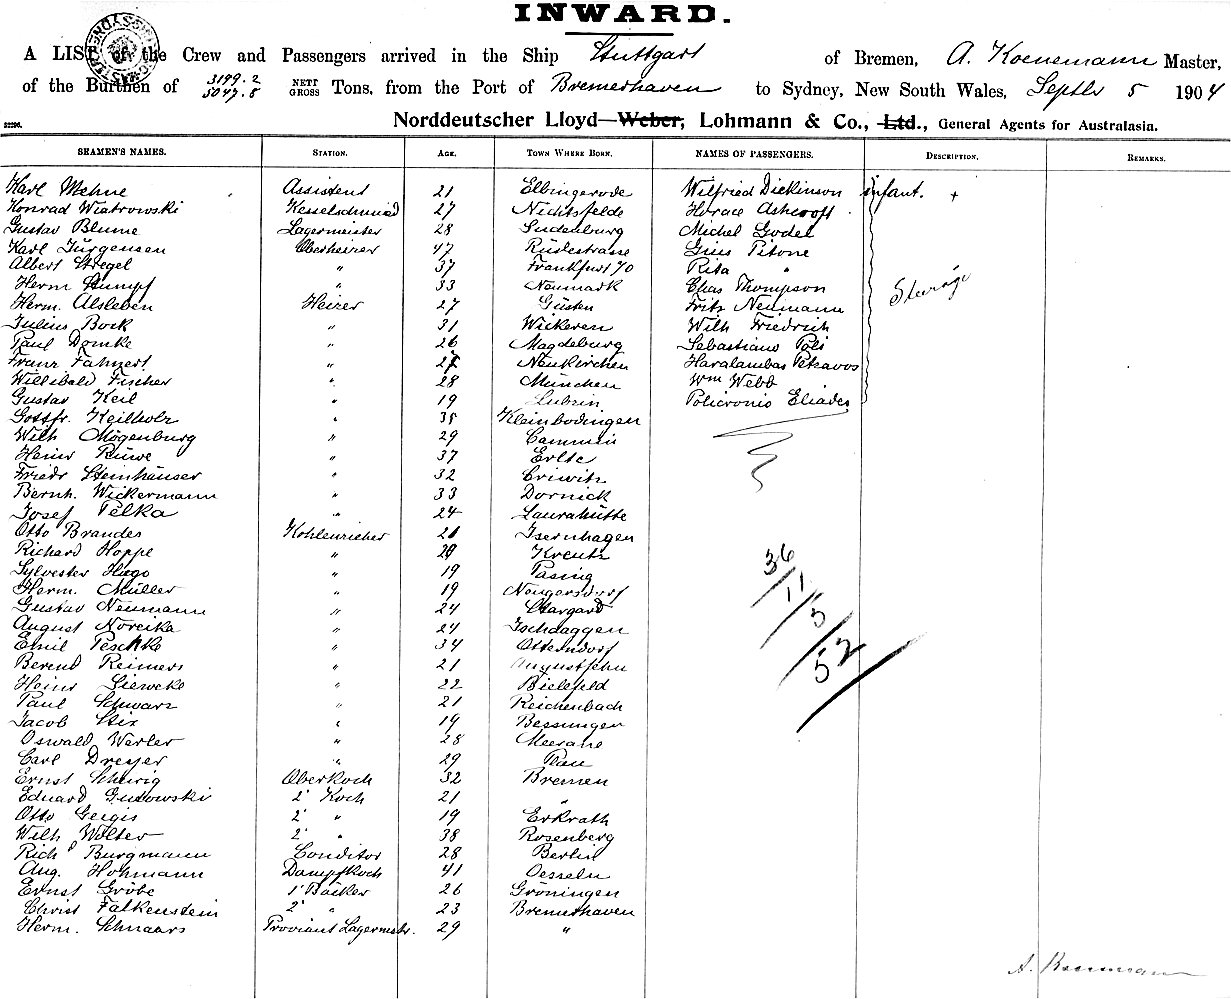 INWARD.
A LIST of the Crew and Passengers arrived in the Ship Stuttgart of Bremen, A. Koenemann Master,
of the Burthen of 3199.2 5047.8 NETT GROSS Tons, from the Port of Bremerhaven to Sydney, New South Wales, Septbr 5 1904
32296. Norddeutscher Lloyd—Weber, Lohmann & Co., Ltd., General Agents for Australasia.
SEAMEN'S NAMES. STATION. AGE. TOWN WHERE BORN. NAMES OF PASSENGERS. DESCRIPTION. REMARKS.
Karl Mehne Assistent 21 Elbingerode Wilfried Dickinson infant. +
Konrad Wiatrowski Kesselschmied 27 Nichtsfelde Horace Ashcroft
Gustav Blume Lagermeister 28 Sudenburg Michel Godel
Karl Jürgensen Oberheizer 47 Rüdestrasse Gius Pitone
Albert Stregel " 37 Frankfurt %0 Rita "
Herm Stumpf " 33 Neumark Elias Thompson Steerage
Herm. Alsleben Heizer 27 Güsten Fritz Neumann
Julius Bock " 31 Wickeren Wilh Friedrich
Paul Domke " 26 Magdeburg Sebastiano Poli
Franz Fahnert " 27 Neukirchen Haralambas Petravos
Willibald Fischer " 28 München Wm Webb
Gustav Keil " 19 Lubzin Policronio Eliades
Gottfr. Keilholz " 35 Kleinbodingen
Wilh Mögenburg " 29 Cammin
Heinr Rüwe " 37 Erlte
Friedr Steinhäuser " 32 Criwitz
Bernh. Wickermann " 33 Dornick
Josef Pelka " 24 Laurahütte
Otto Brandes Kohlenzieher 21 Isernhagen
Richard Hoppe " 20 Kreutz 36
Sylvester Hugo " 19 Pasing
Herm. Müller " 19 Nougersdorf 11
Gustav Neumann " 24 Stargard 5
August Noreika " 24 Ischdaggen
Emil Peschke " 34 Otterndorf 52
Berend Reimers " 21 Augustfehn
Heinr Siewcke " 22 Bielefeld
Paul Schwarz " 21 Reichenbach
Jacob Stix " 19 Bessungen
Oswald Werler " 28 Meerane
Carl Dreyer " 29 Plau
Ernst Schwig Oberkoch 32 Bremen
Eduard Gutowski 2' Koch 21 "
Otto Geigis 2' " 19 Erkrath
Wilh Wolter 2' " 38 Rosenberg
Rich Burgmann Conditor 28 Berlin
Aug. Hohmann Dampfkoch 41 Oesseln
Ernst Gröbe 1' Bäcker 26 Gröningen
Christ Falkenstein 2' " 23 Bremerhaven
Herm. Schnaars Proviant Lagermstr. 29 "
A. Koenemann